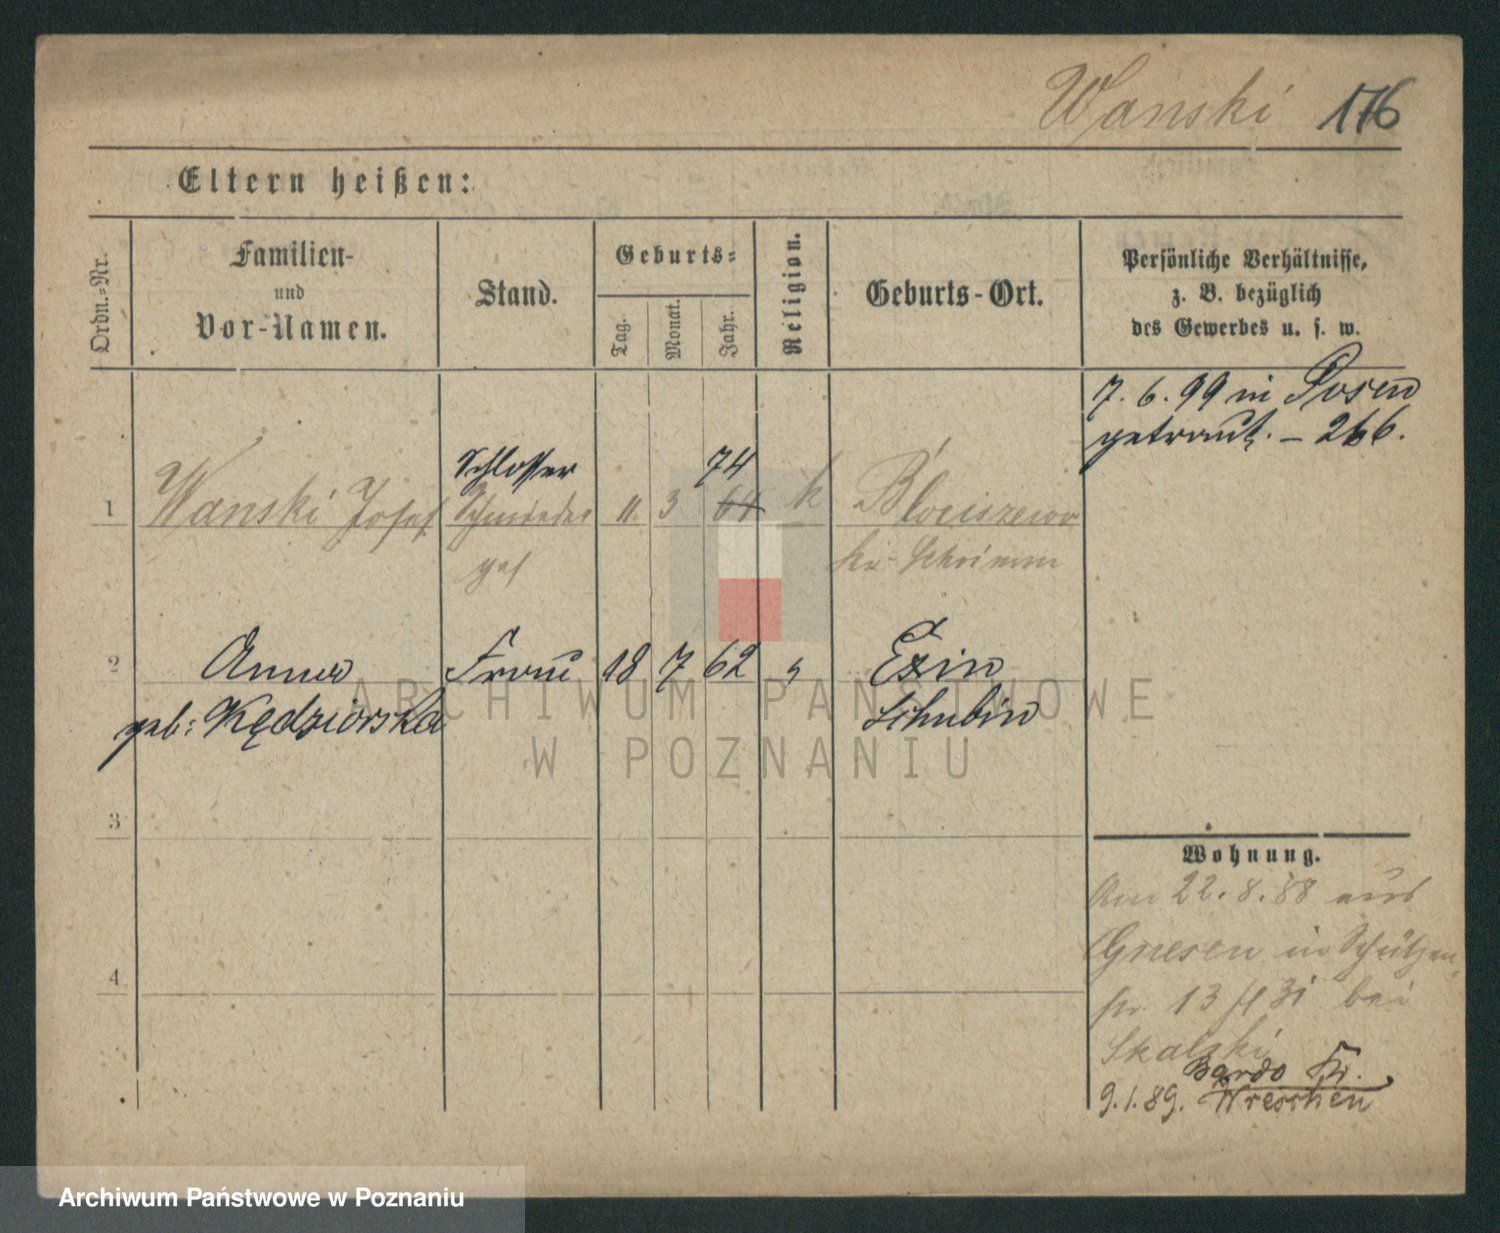 Wanski 176
Eltern heißen:
Ordn.-Nr.
Familien-
und
Vor-Namen.
Stand.
Geburts-
Tag.
Monat.
Jahr.
Religion.
Geburts-Ort.
Persönliche Verhältnisse,
z. B. bezüglich
des Gewerbes u. s. w.
7. 6. 99 in Posen
getraut. – 266.
Schlosser
74
1 Wanski Josef 11 3 64 k Blociszewo
ges Kr. Schrimm
2 Anna Frau 18 7 62 " Exin
geb: Kędziorska Schubin
3
4
Wohnung.
Am 22. 8. 88 aus
Gnesen in Schützen-
str. 13 bei
Skalski
Bardo Kr.
9.1.89. Wreschen
ARCHIWUM PAŃSTWOWE
W POZNANIU
Archiwum Państwowe w Poznaniu